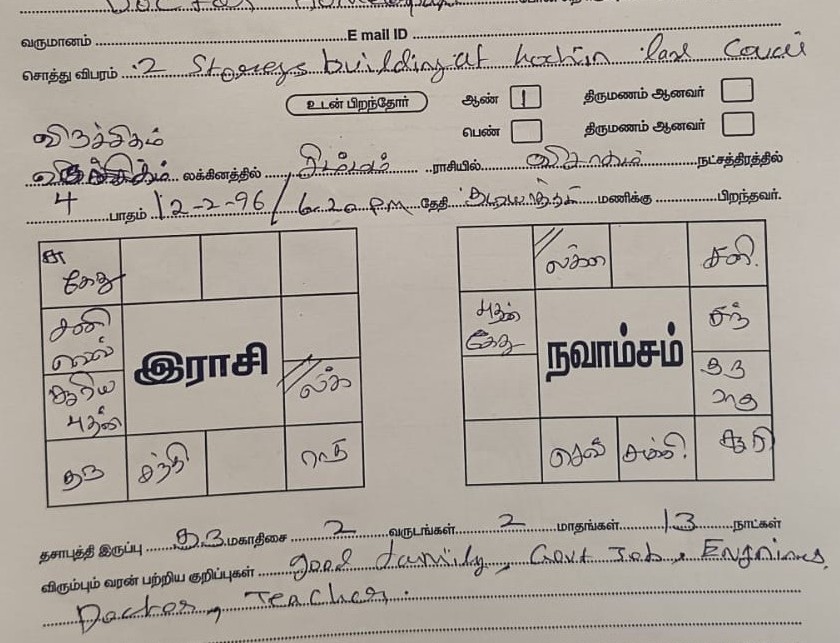 வருமானம் E mail ID
சொத்து விபரம் 2 Storeys building at lane
உடன் பிறந்தோர் ஆண் 1 திருமணம் ஆனவர்
பெண் திருமணம் ஆனவர்
விருச்சிகம்
லக்கினத்தில் சிம்மம் ராசியில் விசாகம் நட்சத்திரத்தில்
4 பாதம் 12-2-96 / 6.20 P.M தேதி மணிக்கு பிறந்தவர்.
கேது
சனி
சூரிய
புதன்
குரு சந்தி ராகு
லக்
இராசி
லக்ன சனி.
புதன்
கேது
சந்
குரு
ராகு
செவ் சுக்கி. சூரி
நவாம்சம்
தசாபுத்தி இருப்பு குரு மகாதிசை 2 வருடங்கள் 2 மாதங்கள் 13 நாட்கள்
விரும்பும் வரன் பற்றிய குறிப்புகள் good family, Govt Job, Engineer,
Doctor, Teacher.